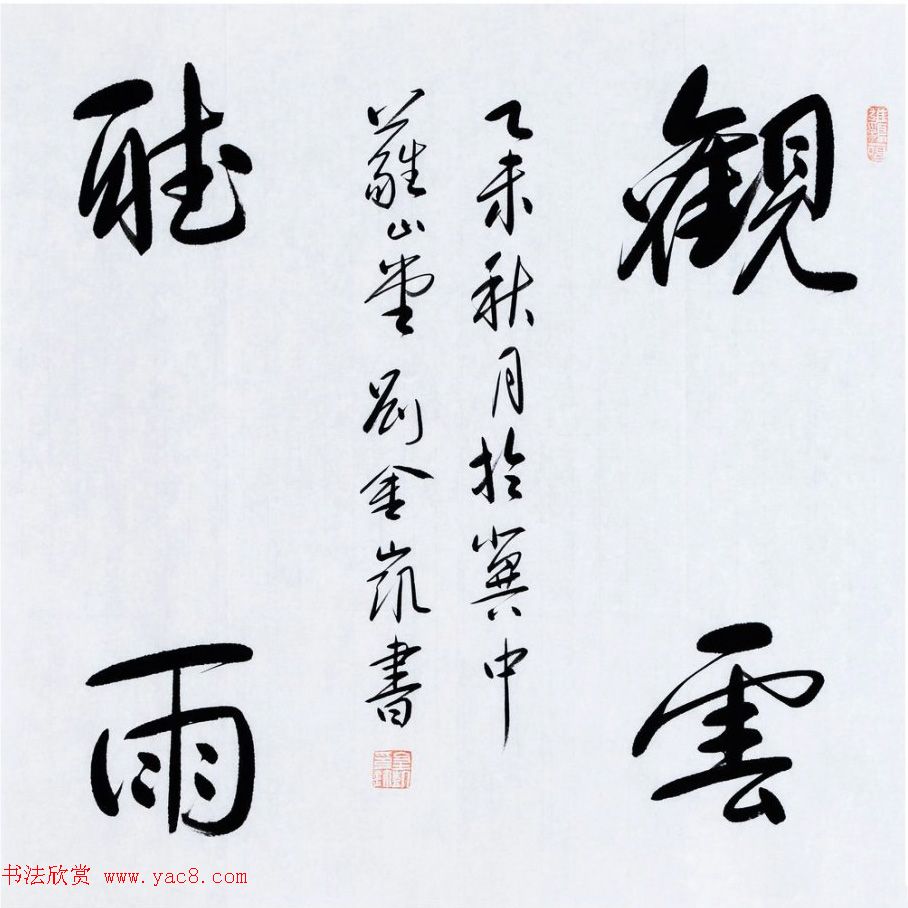 觀雲
聽雨
乙未秋月於冀中
蘿山堂劉金凱書
书法欣赏 www.yac8.com